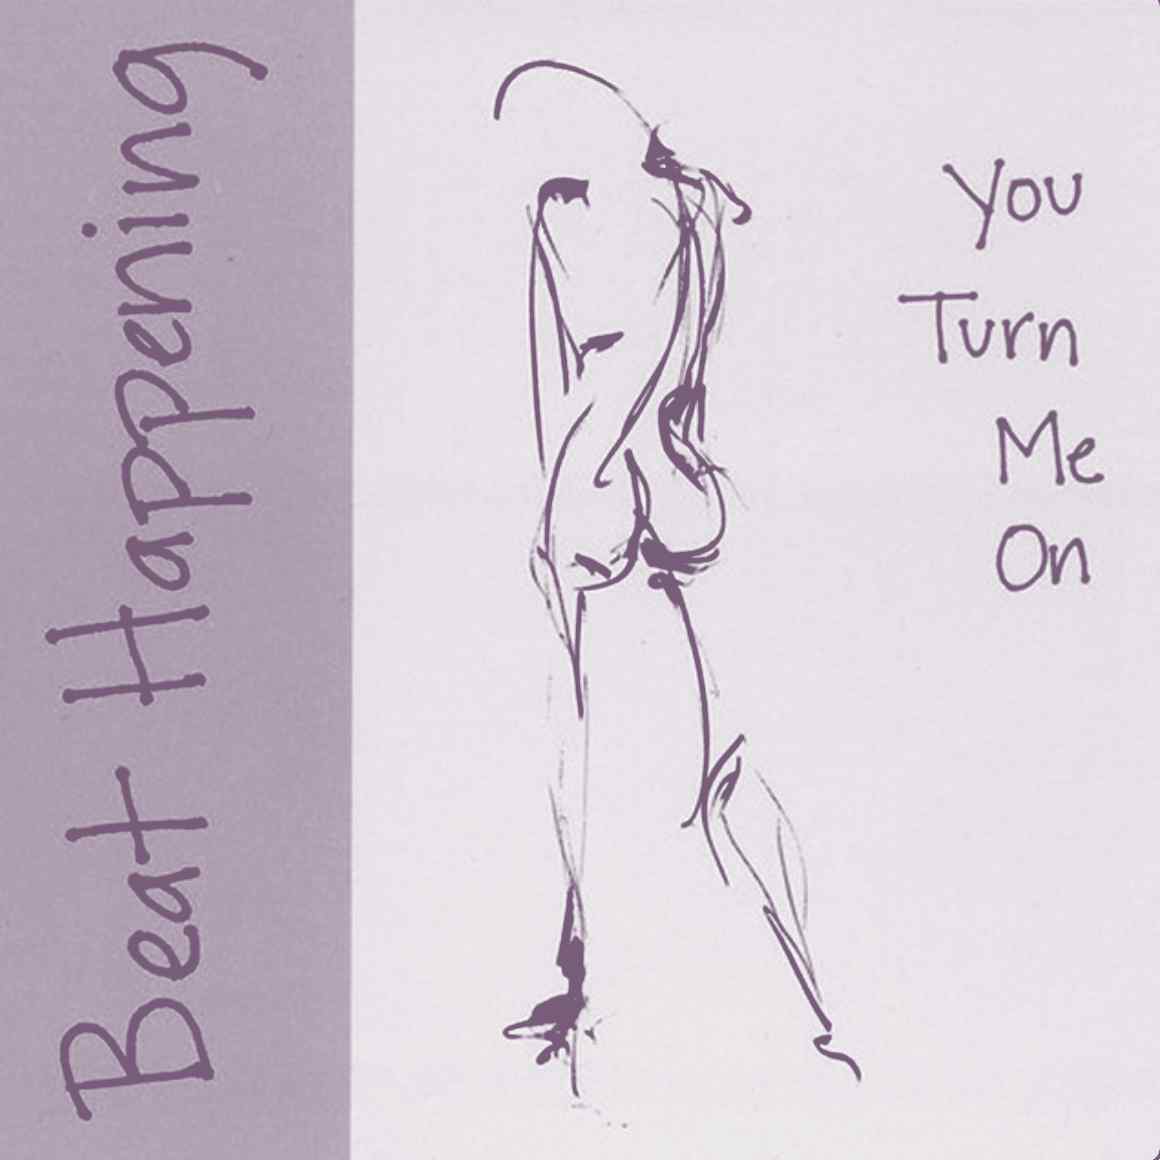 Beat Happening
You
Turn
Me
On